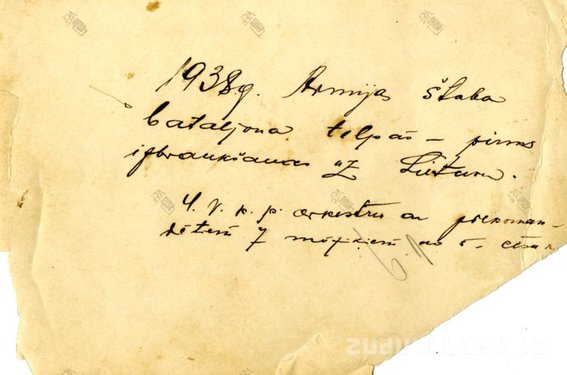 1938.g. Armijas štaba
bataljona telpās – pirms
izbraukšanas uz Lietuvu.
4. V. k. p. orkestris ar piekoman-
dētiem 7 mūziķiem no